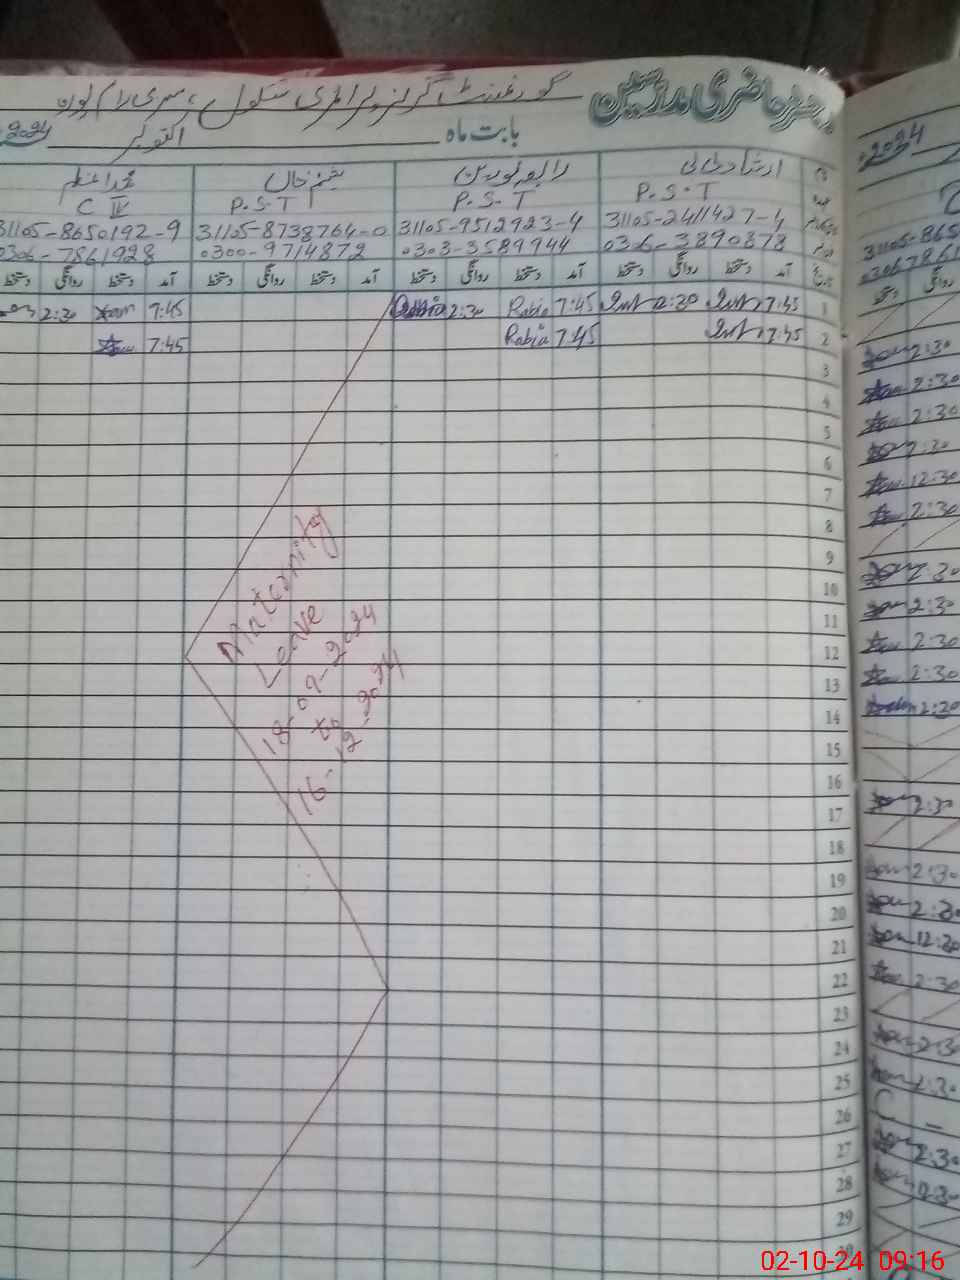 رجسٹر حاضری مدرسین گورنمنٹ گرلز پرائمری سکول، سری رام پورہ
بابت ماہ اکتوبر 2024
ارشاد P.S.T 31105-2411427-4 0306-3890878
رابعہ نورین P.S.T 31105-9512923-4 0303-3589944
شبنم خان P.S.T 31105-8738764-0 0300-9714872
محمد اعظم C IV 31105-8650192-9 0306-7861928
آمد دستخط روانگی دستخط آمد دستخط روانگی دستخط آمد دستخط روانگی دستخط آمد دستخط روانگی دستخط
1 7:45 2:30 7:45 Rabia 2:30 Rabia 7:45 2:30
2 7:45 7:45 Rabia 7:45
3
4
5
6
7
8
9
10
11
12
13
14
15
16
17
18
19
20
21
22
23
24
25
26
27
28
29
30
Maternity
Leave
18-09-2024
to
16-12-2024
2024
2:30
2:30
2:30
2:30
12:30
2:30
2:30
2:30
2:30
2:30
2:30
2:30
2:30
2:30
12:30
2:30
2:30
2:30
C
2:30
2:30
02-10-24 09:16